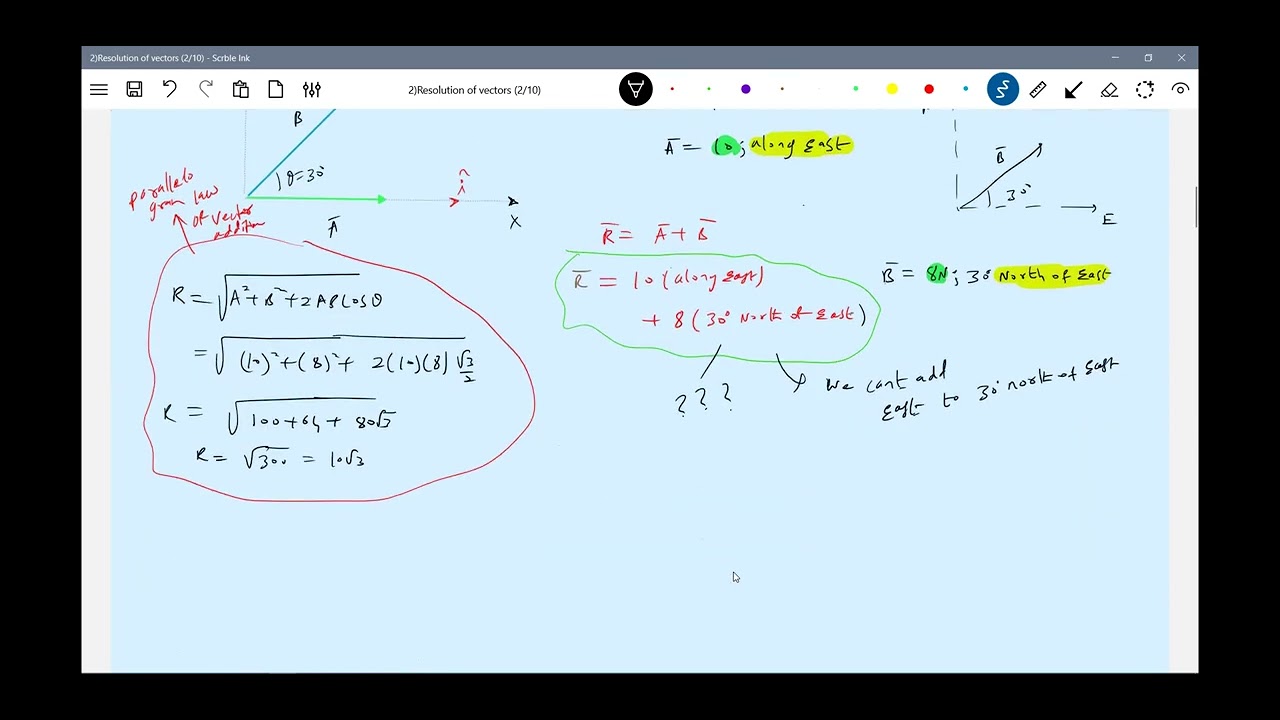 2)Resolution of vectors (2/10) - Scrble Ink
2)Resolution of vectors (2/10)
B
θ=30°
î
X
Ā
parallelo
gram law
of vector
addition
R = √A²+B²+2ABCOSθ
= √(10)²+(8)²+ 2(10)(8)√3/2
R = √100+64+80√3
R = √300 = 10√3
Ā = 10; along East
R̄ = Ā + B̄
R̄ = 10 (along East)
+ 8 (30° North of East)
? ? ?
We can't add
East to 30° north of East
B̄
30°
E
B̄ = 8N; 30° North of East